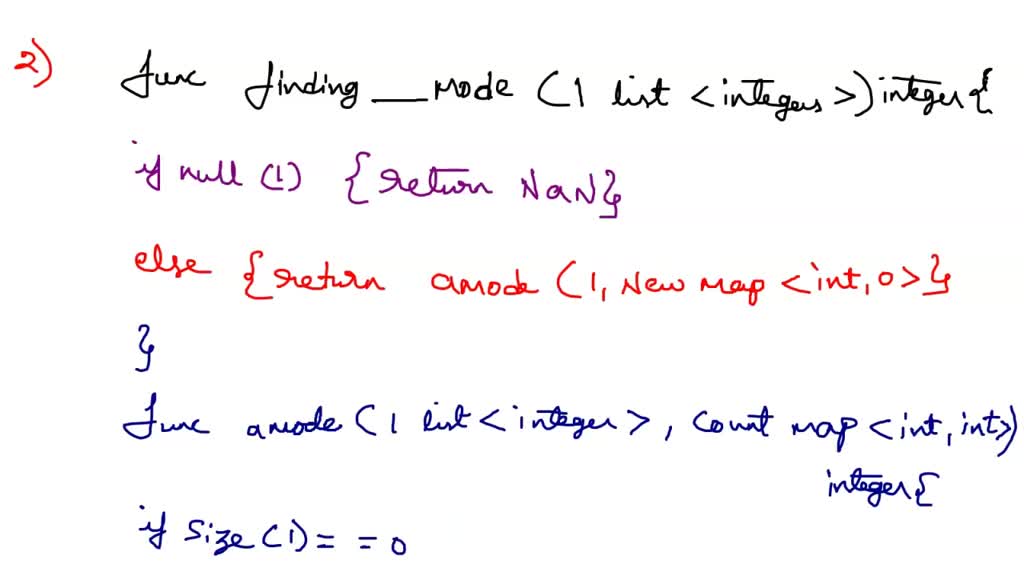 2) func finding __ mode (1 list <integers>) integer{
if null (1) {return NaN}
else {return amode (1, New map <int, 0>}
}
func amode (1 list <integer>, count map <int, int>)
integer{
if size (1) = = 0